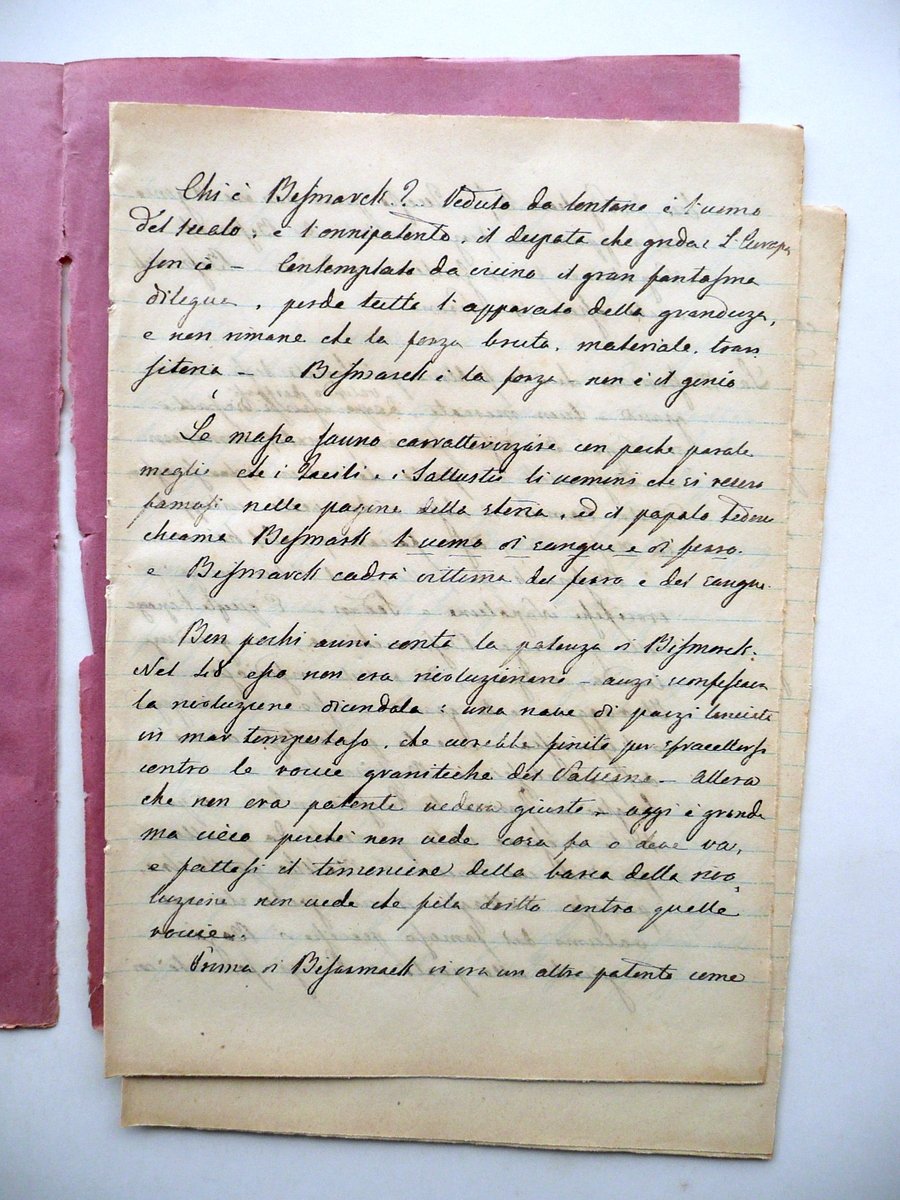 Chi è Bismarck? Veduto da lontano è l'uomo
del secolo, è l'onnipotente, il despota che grida: L'Europa
son io – Contemplato da vicino il gran fantasma
dilegua, perde tutto l'apparato della grandezza,
e non rimane che la forza bruta, materiale, tran
sitoria – Bismarck è la forza – non è il genio
Le masse sanno carratterizzare con poche parole
meglio che i Taciti, i Sallustii li uomini che si resero
famosi nelle pagine della storia, ed il popolo tedesco
chiama Bismark l'uomo di sangue e di ferro.
e Bismarck cadrà vittima del ferro e del sangue.
Ben pochi anni conta la potenza di Bismarck.
Nel 48 esso non era rivoluzionario – anzi confessava
la rivoluzione dicendola: una nave di pazzi lanciata
in mar tempestoso, che avrebbe finito per sfracellarsi
contro le roccie granitiche del Vaticano – Allora
che non era potente vedeva giusto – oggi è grande
ma cieco perchè non vede cosa fa o dove va,
e fattosi il timoniere della barca della rivo
luzione non vede che fila diritto contro quelle
roccie.
Prima di Bissmack vi era un altro potente come